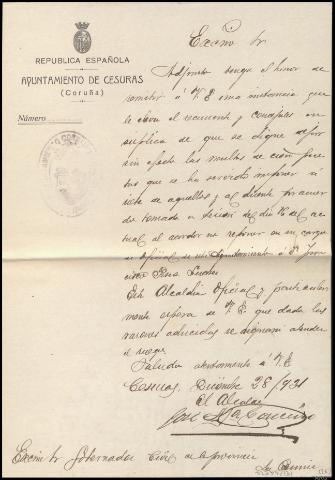 REPUBLICA ESPAÑOLA
AYUNTAMIENTO DE CESURAS
(Coruña)
Número
Excmo Sr
Adjunto tengo el honor de
remitir á V.E una instancia que
le elevan el recurrente y Concejales en
suplica de que se digne dejar
sin efecto las multas de cien pese
tas que se ha servido imponer á
siete de aquellos y al dicente por acuer
do tomado en sesión del día 16 del ac
tual al acordar no reponer en su cargo
de Oficial de este Ayuntamiento á Dn
Esta Alcaldía Oficial y particular
mente espera de V.E que dada las
razones aducidas se dignará atender
el ruego
Saluda atentamente á V.E
Cesuras, Diciembre 28/931
El Alcalde
José
Excmo Sr Gobernador Civil de la provincia
La Coruña